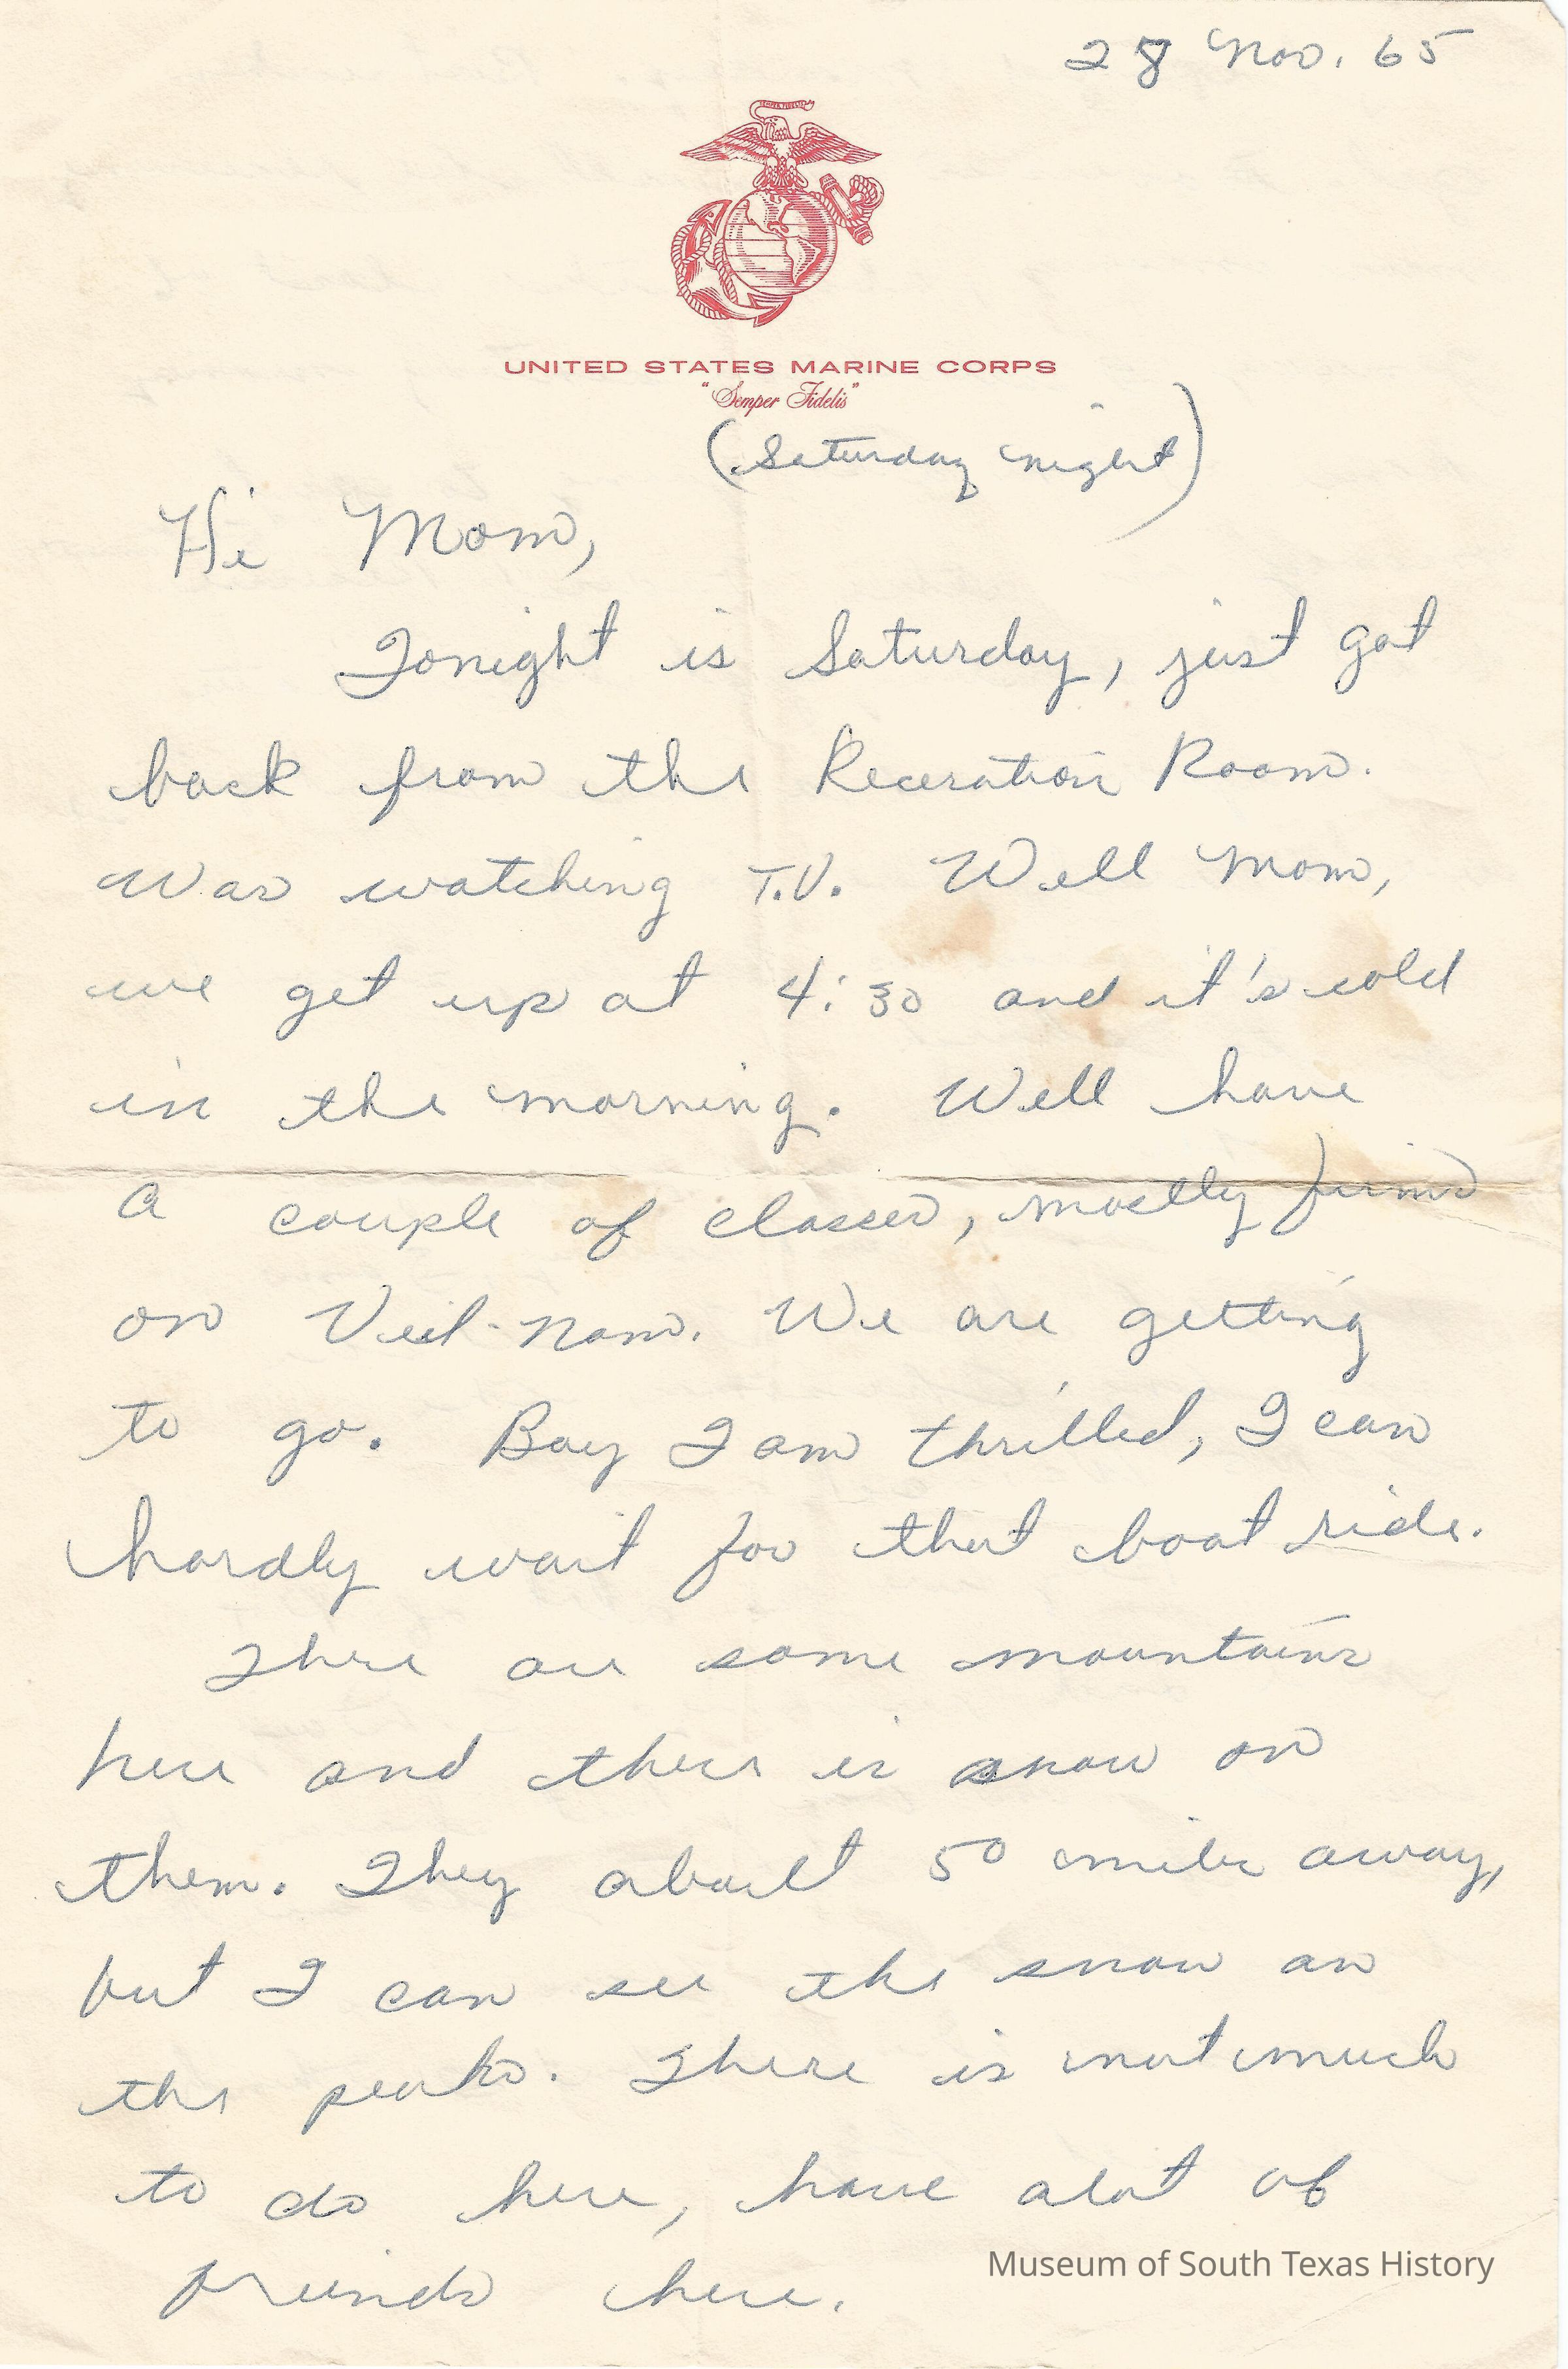 28 Nov. 65
UNITED STATES MARINE CORPS
"Semper Fidelis"
(Saturday night)
Hi Mom,
Tonight is Saturday, just got
back from the Receration Room.
Was watching T.V. Well Mom,
we get up at 4:30 and it's cold
in the morning. Well have
a couple of classes, mostly
on Veit-nam. We are getting
to go. Boy I am thrilled, I can
hardly wait for that boat ride.
There are some mountains
here and there is snow on
them. They about 50 miles away,
but I can see the snow on
the peaks. There is not much
to do here, have alot of
freinds here.
Museum of South Texas History